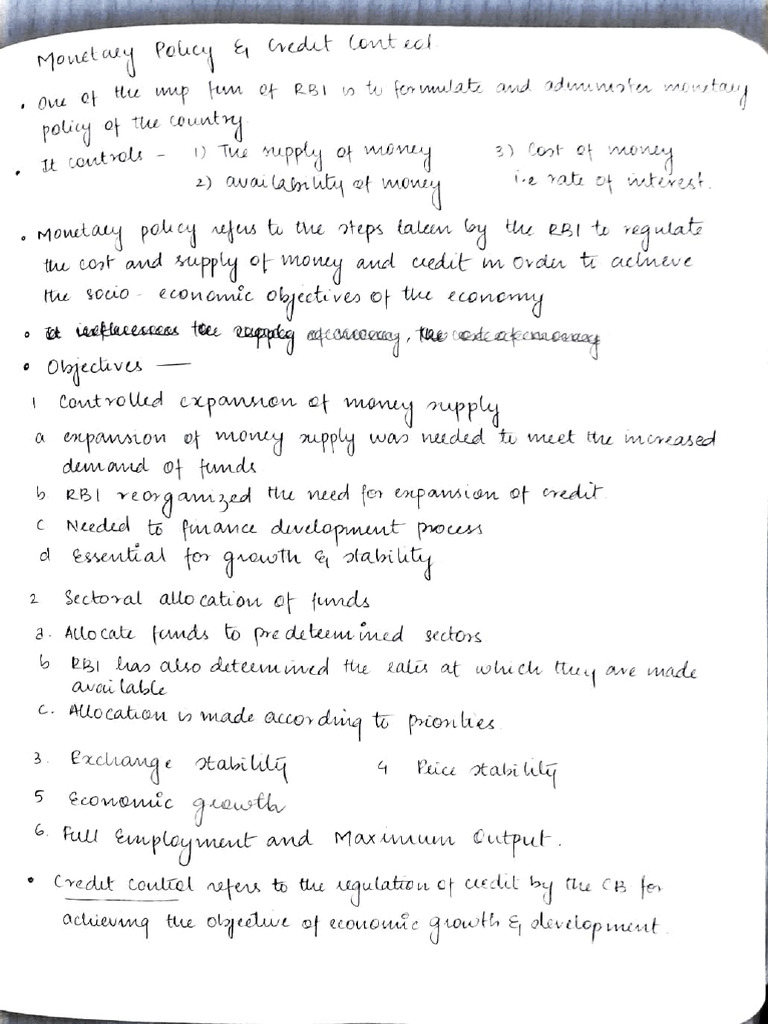 Monetary Policy & Credit Control
• One of the imp fun of RBI is to formulate and administer monetary
policy of the country
• It controls - 1) The supply of money 3) Cost of money
2) availability of money i.e rate of interest.
• Monetary policy refers to the steps taken by the RBI to regulate
the cost and supply of money and credit in order to achieve
the socio - economic objectives of the economy
• It influences the supply of money, the cost of money
• Objectives —
1 Controlled expansion of money supply
a expansion of money supply was needed to meet the increased
demand of funds
b RBI reorganized the need for expansion of credit.
c Needed to finance development process
d Essential for growth & stability
2 Sectoral allocation of funds
a. Allocate funds to predetermined sectors
b RBI has also determined the rates at which they are made
available
c. Allocation is made according to priorities.
3. Exchange stability 4 Price stability
5 Economic growth
6. Full Employment and Maximum Output.
• Credit control refers to the regulation of credit by the CB for
achieving the objective of economic growth & development.